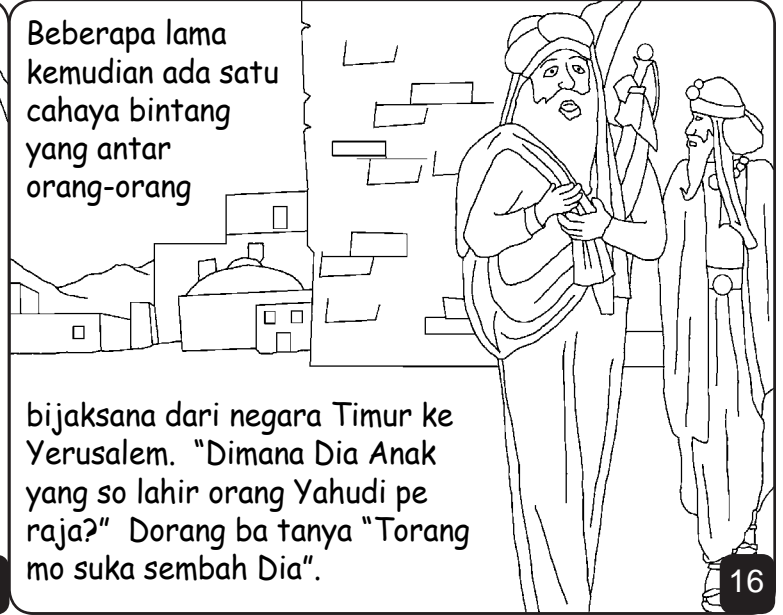 Beberapa lama
kemudian ada satu
cahaya bintang
yang antar
orang-orang
bijaksana dari negara Timur ke
Yerusalem.  “Dimana Dia Anak
yang so lahir orang Yahudi pe
raja?”  Dorang ba tanya “Torang
mo suka sembah Dia”.
16